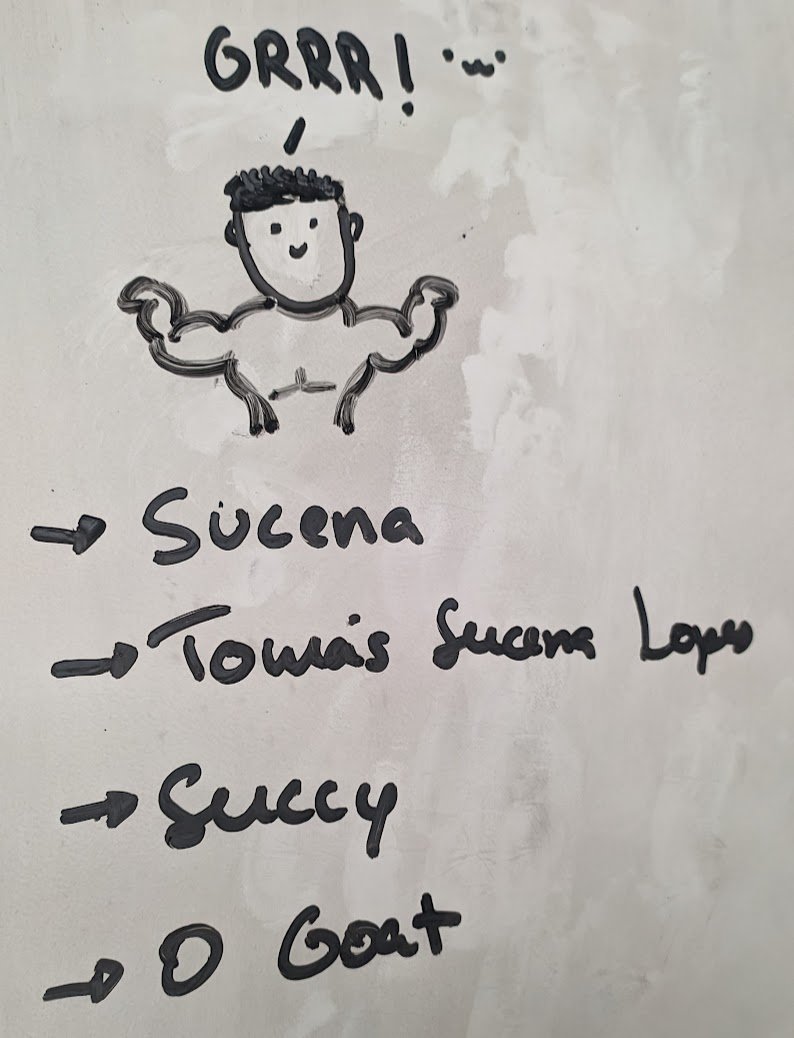 GRRR! ·w·
→ Sucena
→ Tomás Sucena Lopes
→ Succy
→ O Goat